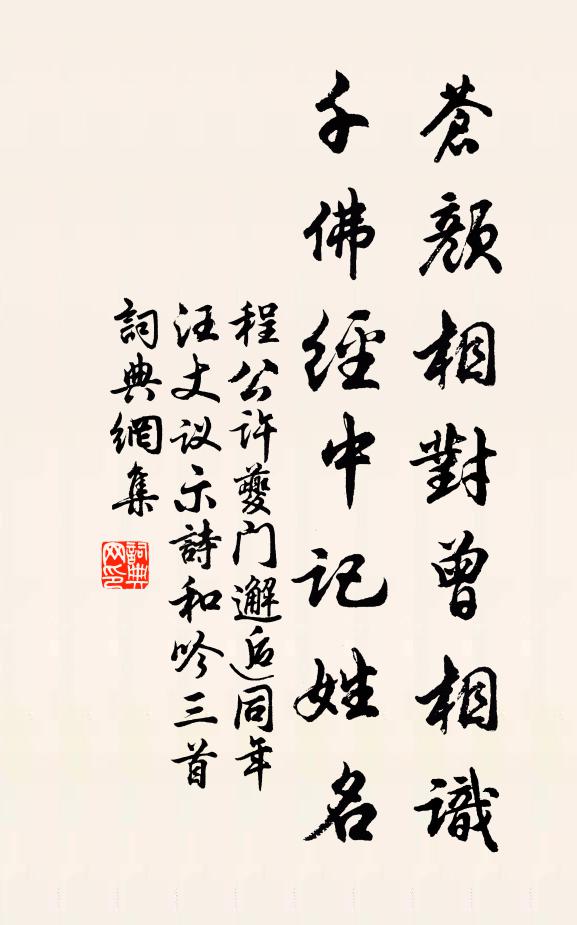 蒼顏相對曾相識
千佛經中記姓名
程公許夔门邂逅同年
汪丈议示詩和吟三首
詞典網集
詞典
网印